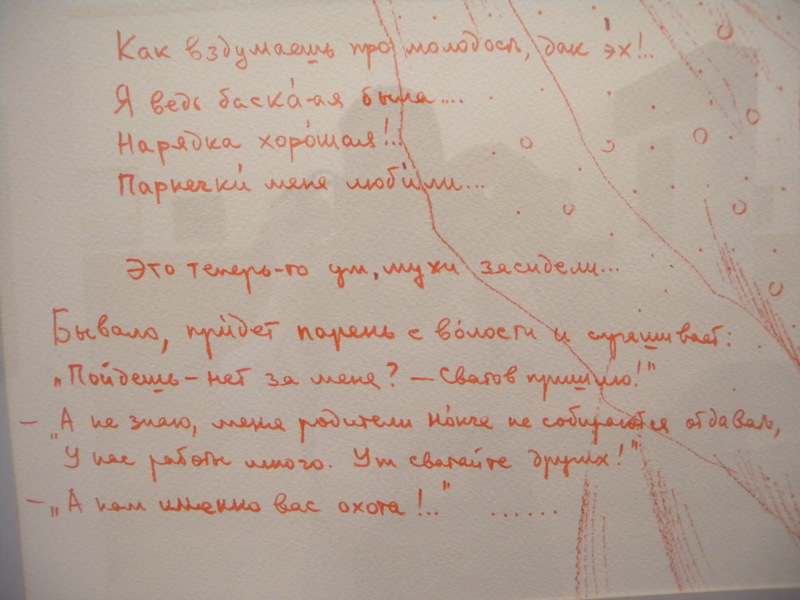 Как вздумаешь про молодость, дак э́х!..
Я ведь баска́-ая была....
Нарядка хоро́шая!..
Парнечки́ меня люби́ли...
Это теперь-то уж, мухи засидели...
Бывало, при́дет парень с во́лости и спрашивает:
„Пойдешь-нет за меня? – Сватов пришлю!"
– „А не знаю, меня родители но́нче не собираются отдавать,
У нас работы много. Уж сватайте других!"
– „А нам именно вас охота!.." ......